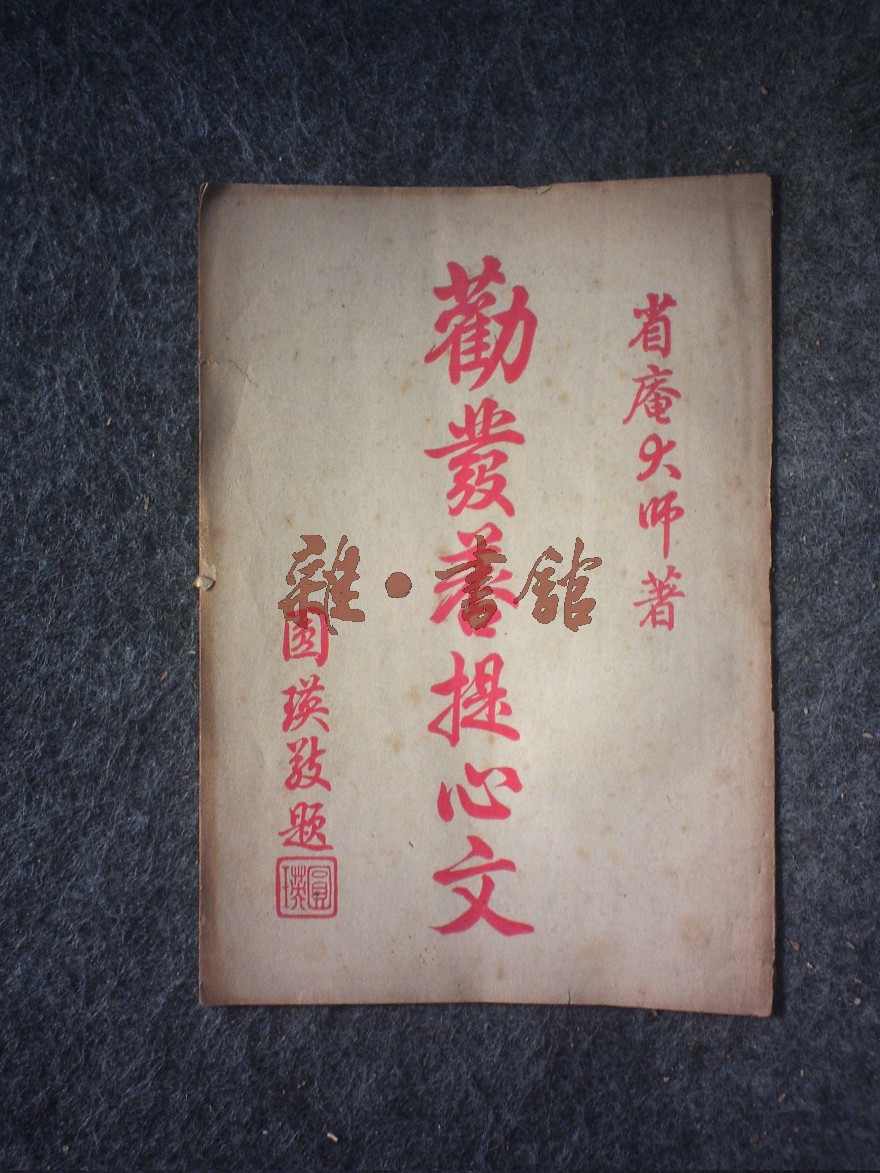 省庵大師著
勸發菩提心文
圓瑛敬題
圓瑛
雜·書館